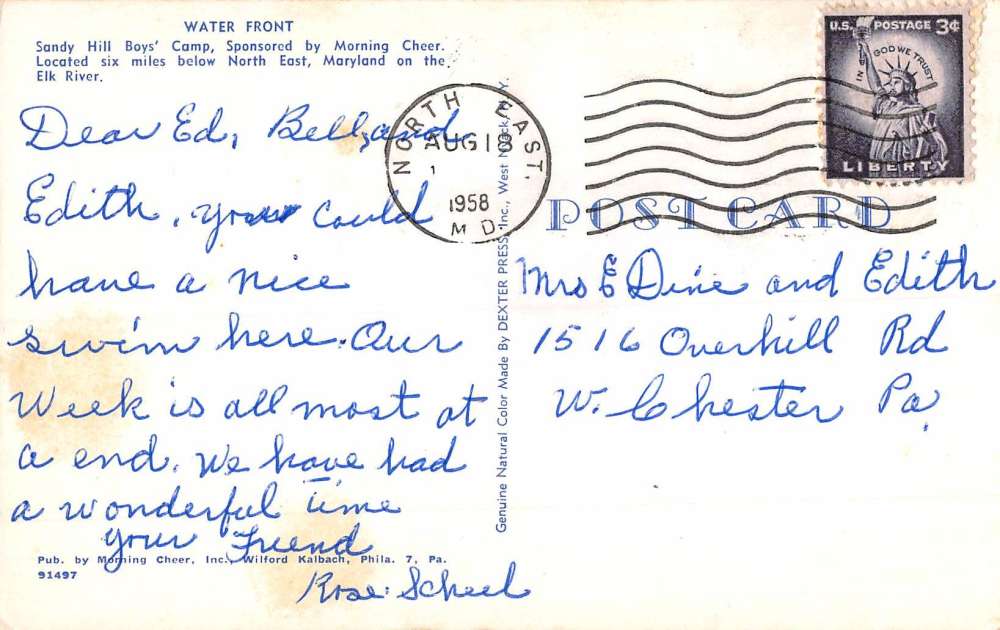 WATER FRONT
Sandy Hill Boys' Camp, Sponsored by Morning Cheer.
Located six miles below North East, Maryland on the
Elk River.
Dear Ed, Bell, and
Edith, you could
have a nice
swim here. Our
Week is all most at
a end. We have had
a wonderful time
your Friend
Rose Scheel
Pub. by Morning Cheer, Inc., Wilford Kalbach, Phila. 7, Pa.
91497
Genuine Natural Color Made By DEXTER PRESS, Inc., West Nyack, N. Y.
NORTH EAST,
AUG 13
1958
M D.
U.S. POSTAGE 3¢
IN GOD WE TRUST
LIBERTY
POST CARD
Mrs E Dine and Edith
1516 Overhill Rd
W. Chester Pa.